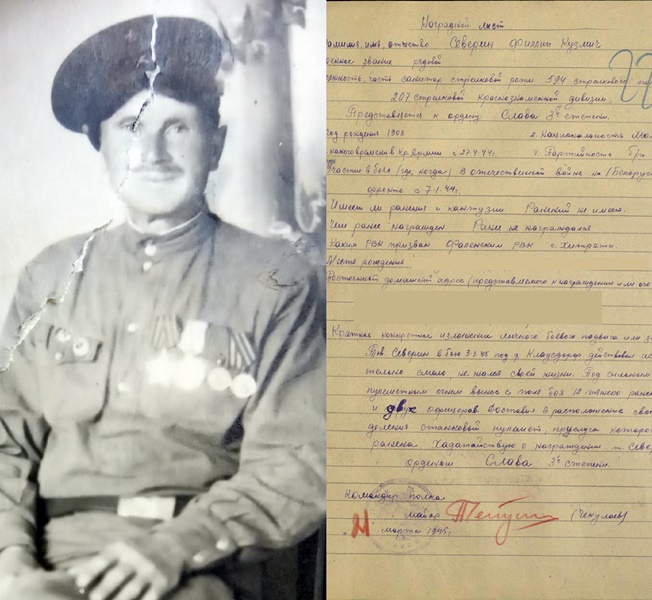 Наградной лист
Фамилия, имя, отчество Северин Филипп Кузмич
военное звание рядовой
санитар стрелковой роты 594 стрелкового
207 стрелковой Краснознаменной дивизии.
Представляется к ордену Слава 3й степени.
год рождения 1903 2. Национальность
с 27.4.44г. 4. Партийность б/п
Участие в боях (где, когда) В отечественной войне на I Белорус
фронте с 7.1.44г.
Имеет ли ранения и контузии Ранений не имеет.
Чем ранее награжден Ранее не награждался
Каким РВК призван РВК г.
Место рождения
Постоянный домашний адрес (представляемого к награждению или его
Краткое конкретное изложение личного боевого подвига или за
Тов. Северин в бою 3.3.45 год д. Клаусдорф действовал ис
тельно смело, не жалея своей жизни. Под сильным
пулеметным огнем вынес с поля боя 12 тяжело ране
и двух офицеров. Доставил в расположение сво
деления станковый пулемет, прислуга которо
ранена. Ходатайствую о награждении т. Севе
орденом Слава 3й степени.
Командир Полка
майор (Чекулаев)
21 марта 1945г.